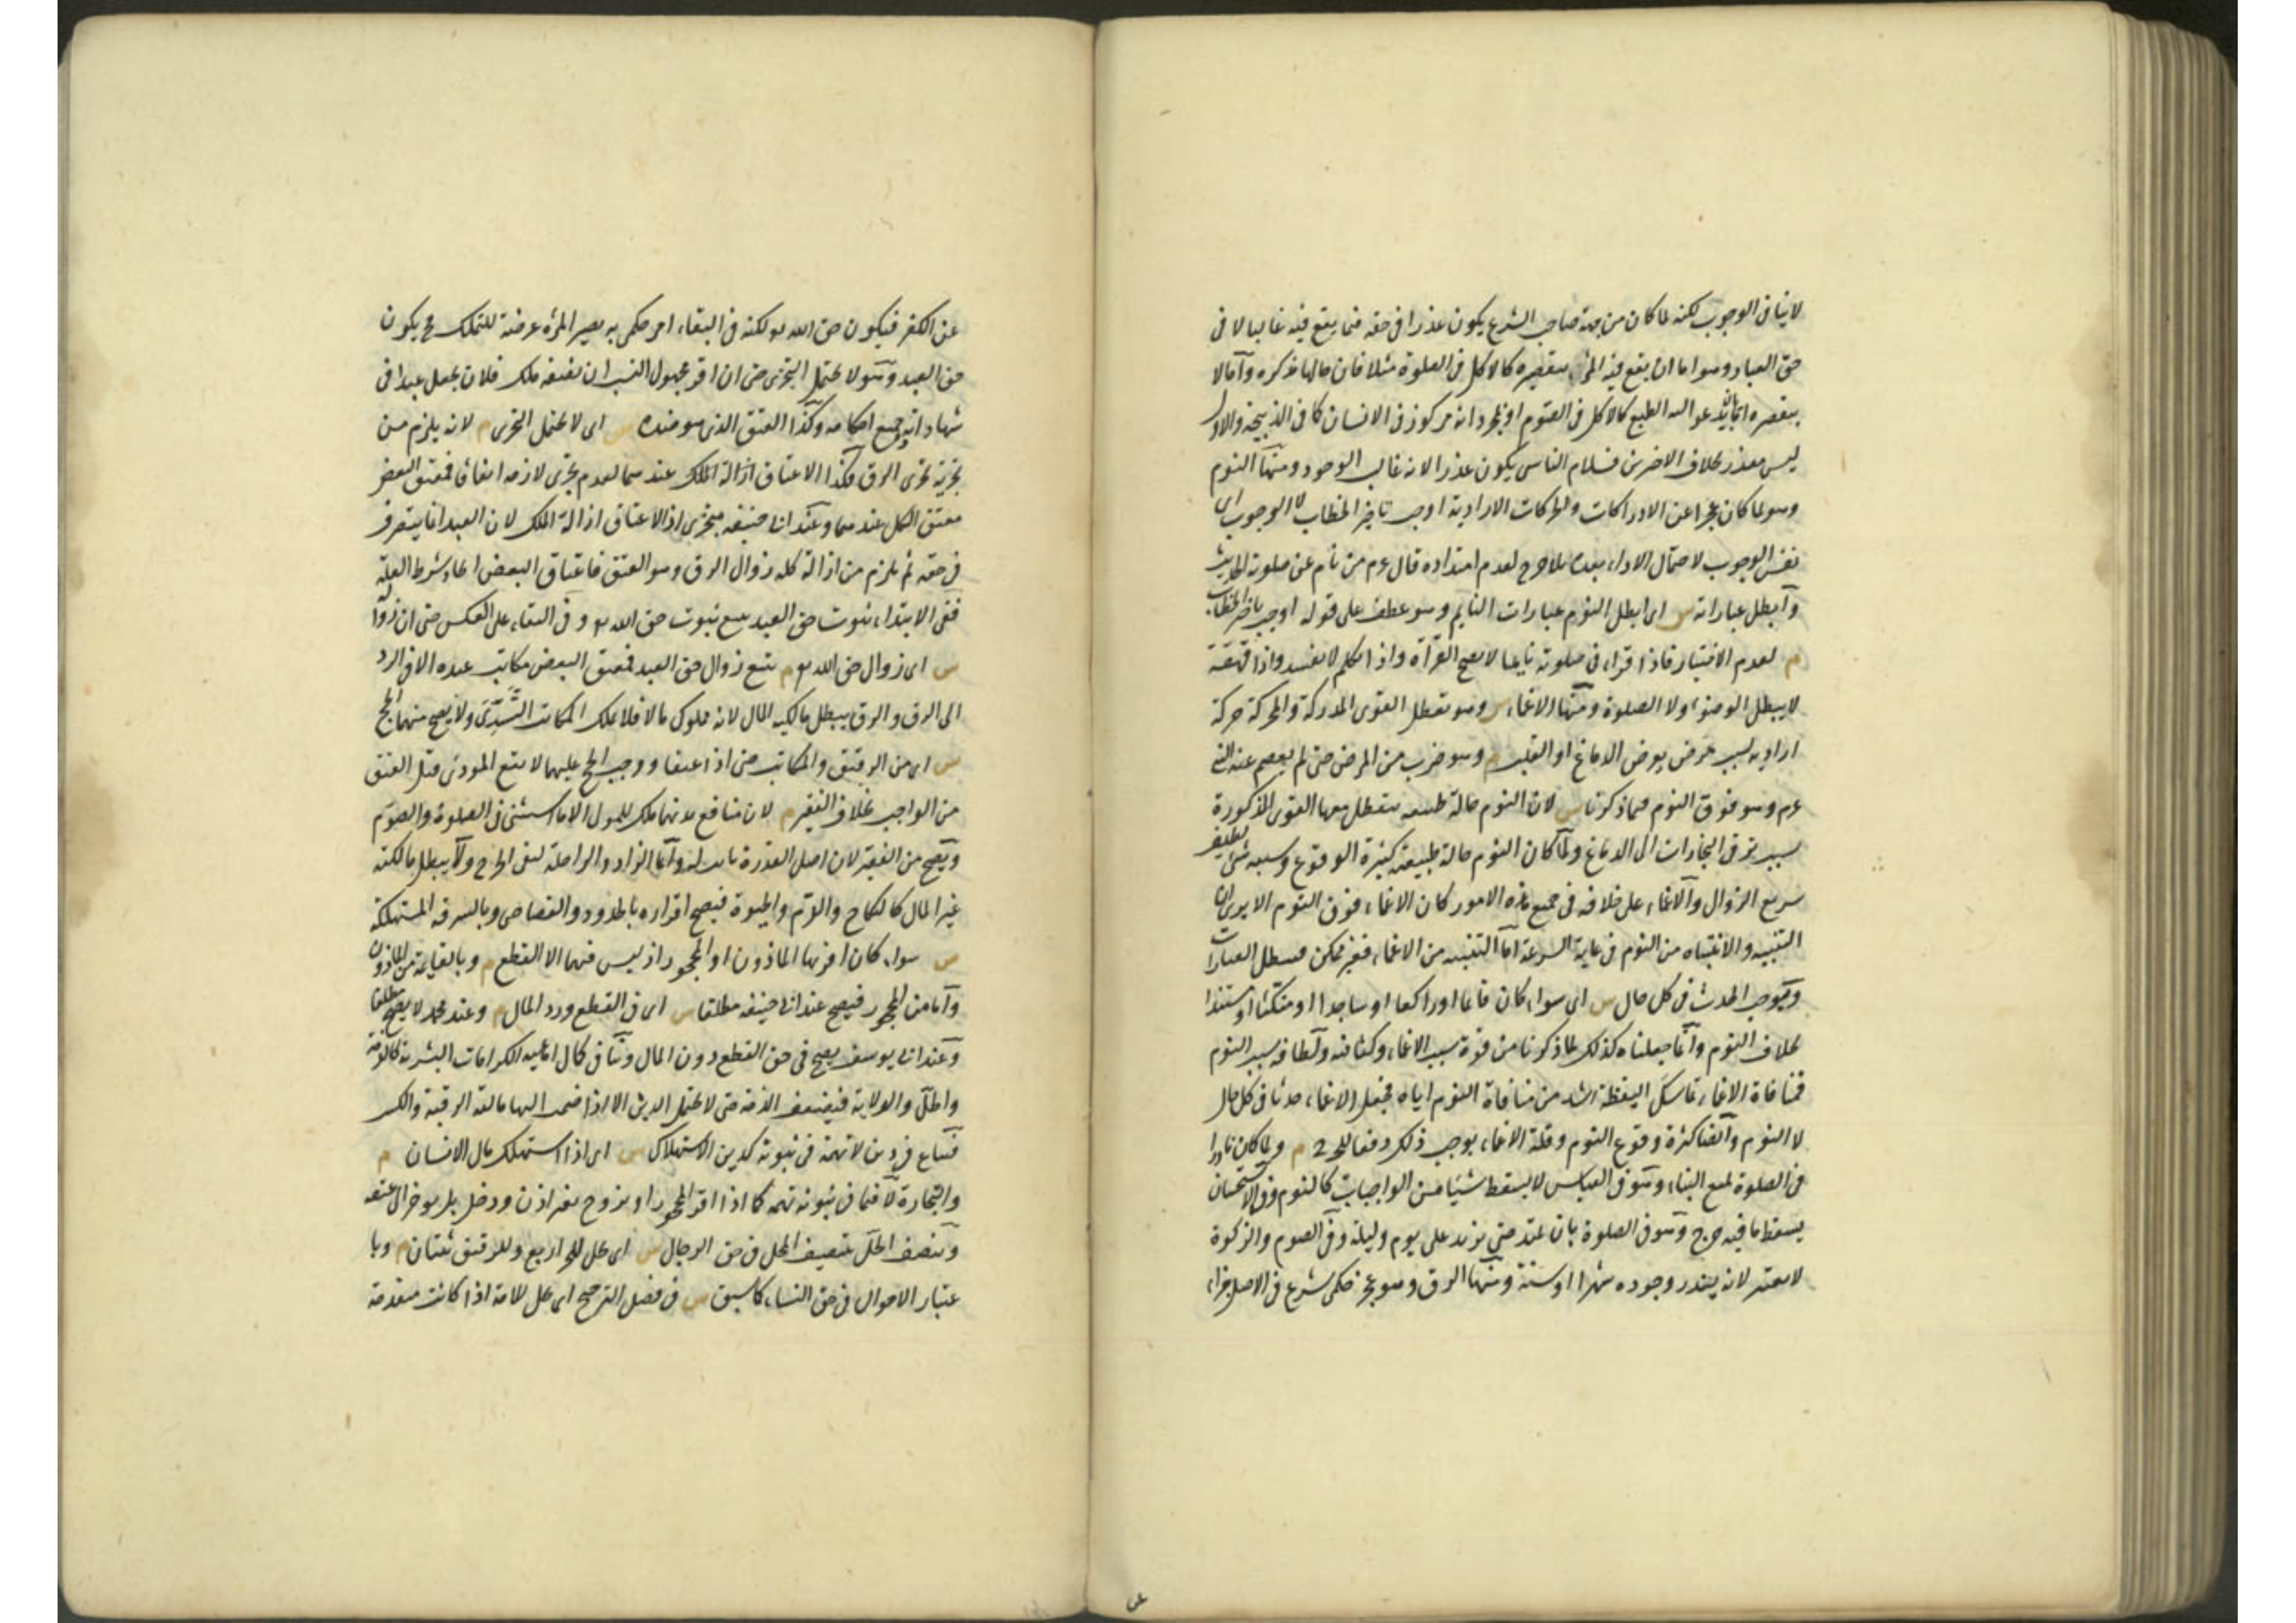 لا ينافى الوجوب لكنه لما كان من جهة صاحب الشرع يكون عذرا فى حقه فيما يقع فيه غالبا لا فى
حق العباد وهو اما ان يقع فيه المرء بتقصيره كالاكل فى الصلوة مثلا فان حالها مذكرة واما لا
بتقصيره اما بان يدعو اليه الطبع كالاكل فى الصوم او بمجرد انه مركوز فى الانسان كما فى الذبيحة والاول
ليس بعذر بخلاف الاخيرين فسلام الناسى يكون عذرا لانه غالب الوجود ومنها النوم
وهو لما كان عجزا عن الادراكات والحركات الارادية اوجب تاخير الخطاب لا الوجوب اى
نفس الوجوب لاحتمال الاداء بعده بلا حرج لعدم امتداده قال عم من نام عن صلوة الحديث
وابطل عباراته س اى ابطل النوم عبارات النايم وهو عطف على قوله اوجب تاخير الخطاب
م لعدم الاختيار فاذا قراء فى صلوته نايما لا يصح القراة واذا تكلم لا تفسد واذا قهقه
لا يبطل الوضوء ولا الصلوة ومنها الاغماء س وهو تعطل القوى المدركة والمحركة حركة
ارادية بسبب مرض يعرض الدماغ او القلب م وهو ضرب من المرض حتى لم يعصم عنه النبى
عم وهو فوق النوم فيما ذكرنا س لان النوم حالة طبيعية يتعطل معها القوى المذكورة
بسبب ترقى البخارات الى الدماغ ولما كان النوم حالة طبيعية كثيرة الوقوع وسببه شئ لطيف
سريع الزوال والاغماء على خلافه فى جميع هذه الامور كان الاغماء فوق النوم الا يرى ان
التنبيه والانتباه من النوم فى غاية السرعة اما التنبيه من الاغماء فغير ممكن م فيبطل العبارات
ويوجب الحدث فى كل حال س اى سواء كان قائما او راكعا او ساجدا او متكئا او مستندا
بخلاف النوم وانما جعلناه كذلك لما ذكرنا من قوة سبب الاغماء وكثافته ولطافة سبب النوم
فمنافاة الاغماء تماسك اليقظة اشد من منافاة النوم اياه فجعل الاغماء حدثا فى كل حال
لا النوم وايضا كثرة وقوع النوم وقلة الاغماء يوجب ذلك دفعا للحرج م ولما كان نادرا
فى الصلوة لمنع البناء وهو فى القياس لا يسقط شيئا من الواجبات كالنوم وفى الاستحسان
يسقط ما فيه حرج وهو فى الصلوة بان يمتد حتى يزيد على يوم وليلة وفى الصوم والزكوة
لا يعتبر لانه يندر وجوده شهرا او سنة ومنها الرق وهو عجز حكمى شرع فى الاصل جزاء
عن الكفر فيكون حق الله تع لكنه فى البقاء امر حكمى به يصير المرء عرضة للتملك فح يكون
حق العبد وهو لا يحتمل التجزى حتى ان اقر مجهول النسب ان نصفه ملك فلان يجعل عبدا فى
شهادته وجميع احكامه وكذا العتق الذى هو ضده س اى لا يحتمل التجزى م لانه يلزم من
تجزيه تجزى الرق فكذا الاعتاق ازالة الملك عندهما لعدم تجزى لازمه اتفاقا فمعتق البعض
معتق الكل عندهما وعند ابى حنيفة متجزى اذ الاعتاق ازالة الملك لان العبد انما يتصرف
فى حقه ثم يلزم من ازالة كله زوال الرق وهو العتق فاعتاق البعض ايجاد شطر العلة
ففى الابتداء ثبوت حق العبد يتبع ثبوت حق الله تع وفى البقاء على العكس حتى ان زواله
س اى زوال حق الله تع م يتبع زوال حق العبد فمعتق البعض مكاتب عنده الا فى الرد
الى الرق والرق يبطل مالكية المال لانه مملوك مالا فلا يملك المكاتب التسرى ولا يصح منهما الحج
س اى من الرقيق والمكاتب حتى اذا اعتقا ووجب الحج عليهما لا يقع المودى قبل العتق
من الواجب بخلاف الفقير م لان منافع بدنهما ملك للمولى الا ما استثنى فى الصلوة والصوم
ويصح من الفقير لان اصل القدرة ثابت له وانما الزاد والراحلة لنفى الحرج ولا يبطل مالكية
غير المال كالنكاح والدم والحيوة فيصح اقراره بالحدود والقصاص وبالسرقة المستهلكة
س سواء كان اقر بها الماذون او المحجور اذ ليس فيها الا القطع م وبالقائمة من الماذون
واما من المحجور فيصح عند ابى حنيفة مطلقا س اى فى القطع ورد المال م وعند محمد لا يصح مطلقا
وعند ابى يوسف يصح فى حق القطع دون المال وينافى كمال اهلية الكرامات البشرية كالذمة
والحل والولاية فيضعف الذمة حتى لا يحتمل الدين الا اذا ضمت اليها مالية الرقبة والكسب
فيباع فى دين لا تهمة فى ثبوته كدين الاستهلاك س اى اذا استهلك مال الانسان م
والتجارة لا فيما فى ثبوته تهمة كما اذا اقر المحجور او تزوج بغير اذن ودخل بل يوخر الى عتقه
وينصف الحل بتنصيف المحل فى حق الرجال س اى يحل للحر اربع وللرقيق ثنتان م وبا
عتبار الاحوال فى حق النساء كما سبق س فى فصل الترجيح اى يحل للامة اذا كانت متقدمة